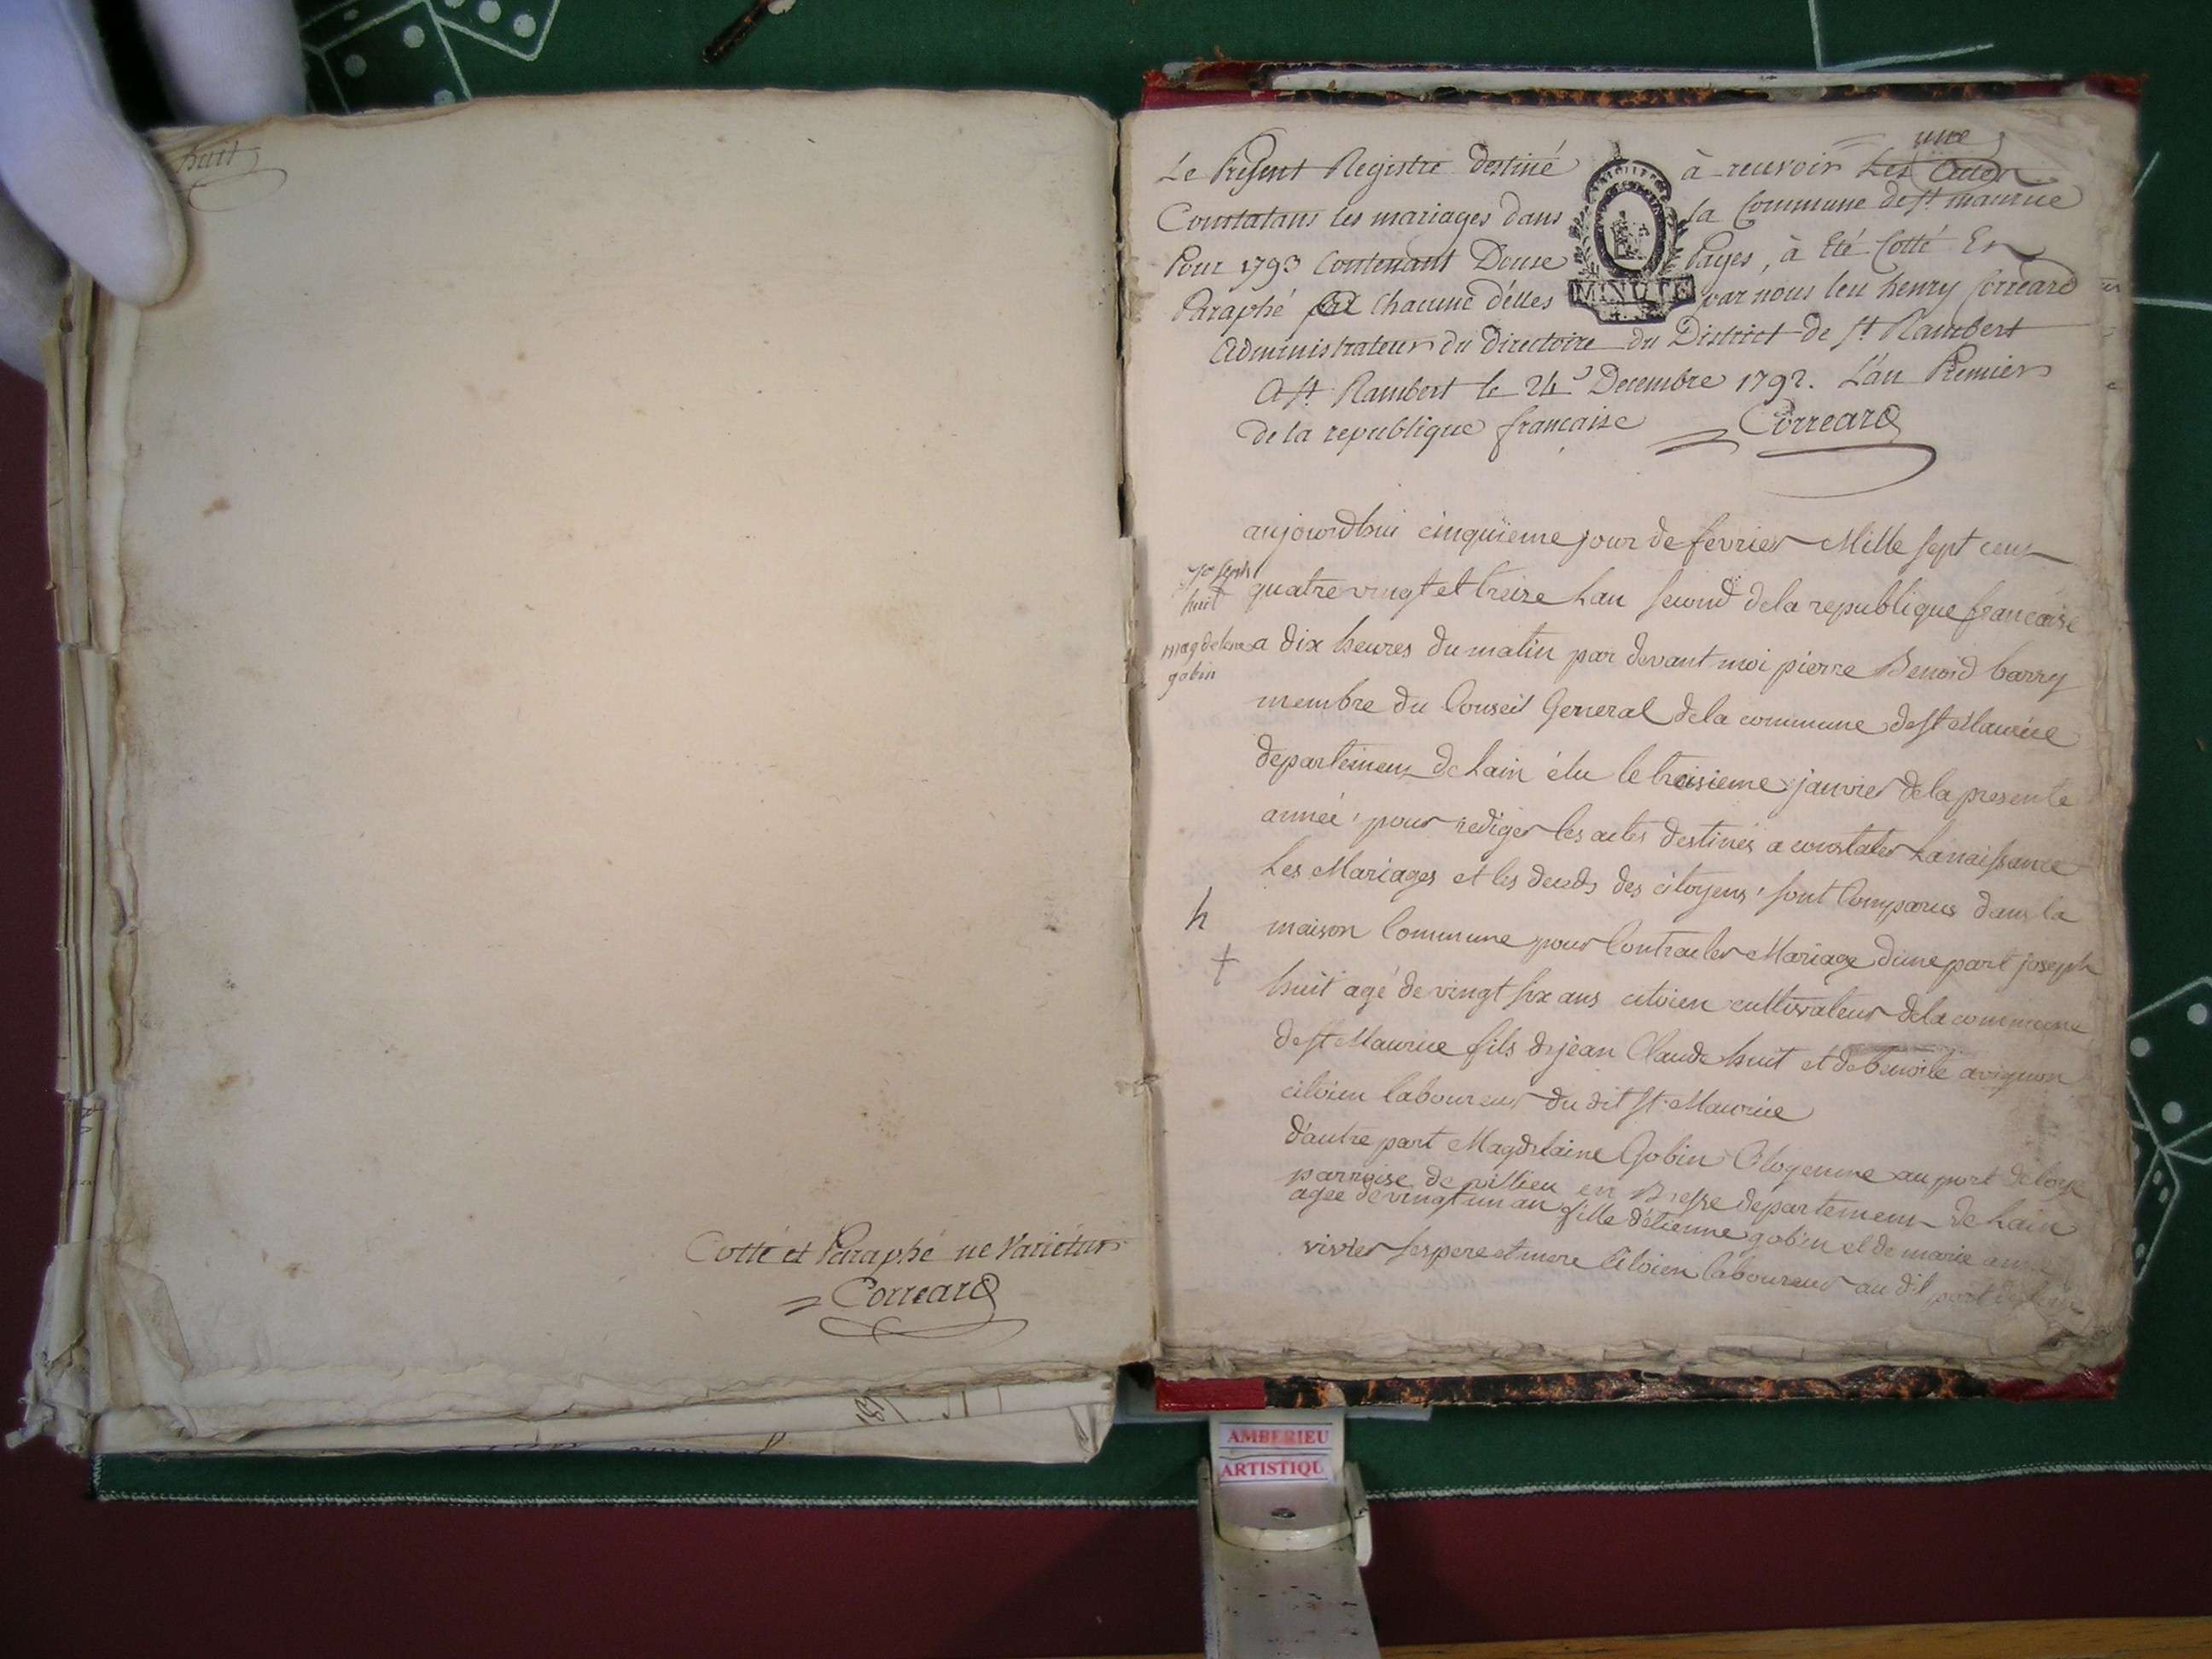 huit
Cotté et Paraphé ne Varietur
Correard
une
Le Present Registre destiné à recevoir Les Actes
Constatans les mariages dans la Commune de st maurice
Pour 1793 Contenant Douse Pages, à été Cotté En
MINUTE
Paraphé par Chacune d'elles par nous leu henry Correard
Administrateur du directoire du District de st Rambert
A st Rambert le 24 Decembre 1792. L'an Premier
de la republique francaise Correard
aujourdhui cinquieme jour de fevrier Mille sept cens
joseph
huit
quatre vingt et treize Lan second dela republique francaise
magdelene
gobin
a dix heures du matin par devant moi pierre Benoid barry
membre du Conseil General dela commune de st Maurice
departemens de Lain élu le troisieme janvier dela presente
année, pour rediger les actes destinés a constater La naissance
Les Mariages et les deceds des citoyens, sont Comparus dans la
h
maison Commune pour Contracter Mariage dune part joseph
huit agé de vingt six ans citoien cultivateur dela commune
de st Maurice fils de jean Claude huit et de benoite avignon
citoien laboureur du dit st Maurice
d'autre part Magdelaine Gobin Citoyenne au port de loye
parroise de villieu en Bresse departemens de Lain
agee de vingt un an fille d'étienne gobin et de marie anne
vivier ses pere et mere Citoien laboureur au dit port de loye
AMBERIEU
ARTISTIQU